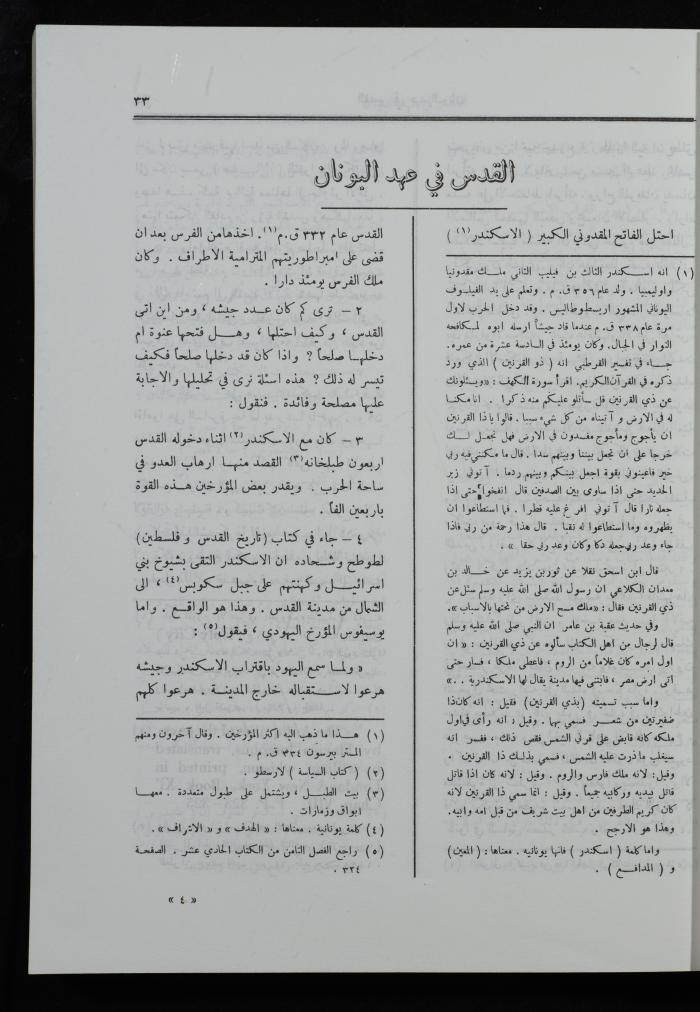 ٣٣
القدس في عهد اليونان
احتل الفاتح المقدوني الكبير ( الاسكندر(١) )
(١) انه اسكندر الثالث بن فيليب الثاني ملك مقدونيا
واوليمبيا . ولد عام ٣٥٦ ق. م . وتعلم على يد الفيلسوف
اليوناني المشهور اريسطوطاليس . وقد دخل الحرب لاول
مرة عام ٣٣٨ ق. م عندما قاد جيشاً ارسله ابوه لمكافحة
الثوار في الجبال. وكان يومئذ في السادسة عشرة من عمره.
جاء في تفسير القرطبي انه ( ذو القرنين ) الذي ورد
ذكره في القرآن الكريم. اقرأ سورة الكهف : «ويسئلونك
عن ذي القرنين قل سأتلو عليكم منه ذكرا . انا مكنا
له في الارض و آتيناه من كل شيء سببا . قالوا ياذا القرنين
ان يأجوج ومأجوج مفسدون في الارض فهل نجعل لك
خرجا على ان تجعل بيننا وبينهم سدا . قال ما مكنني فيه ربي
خير فاعينوني بقوة اجعل بينكم وبينهم ردما . آتوني زبر
الحديد حتى اذا ساوى بين الصدفين قال انفخوا حتى إذا
جعله نارا قال آتوني افرغ عليه قطرا . فما استطاعوا ان
يظهروه وما استطاعوا له نقبا . قال هذا رحمة من ربي فاذا
جاء وعد ربي جعله دكا وكان وعد ربي حقا » .
قال ابن اسحق نقلا عن ثور بن يزيد عن خالد بن
معدان الكلاعي ان رسول الله صلى الله عليه وسلم سئل عن
ذي القرنين فقال : «ملك مسح الارض من تحتها بالاسباب ».
وفي حديث عقبة بن عامر ان النبي صلى الله عليه وسلم
قال لرجال من اهل الكتاب سألوه عن ذي القرنين : « ان
اول امره كان غلاماً من الروم ، فاعطى ملكا ، فسار حتى
اتى ارض مصر ، فابتنى فيها مدينة يقال لها الاسكندرية . »
واما سبب تسميته (بذي القرنين) فقيل : انه كان ذا
ضفيرتين من شعر فسمي بهما . وقيل : انه رأى في اول
ملكه كانه قابض على قرني الشمس فقص ذلك ، ففسر انه
سيغلب ما ذرت عليه الشمس ، فسمي بذلك ذا القرنين .
وقيل: لانه ملك فارس والروم . وقيل : لانه كان اذا قاتل
قاتل بيديه وركابيه جميعاً . وقيل : انما سمي ذا القرنين لانه
كان كريم الطرفين من اهل بيت شريف من قبل امه وابيه.
وهذا هو الارجح .
واما كلمة ( اسكندر ) فانها يونانيه . معناها : (المعين)
و ( المدافع ) .
القدس عام ٣٣٢ ق.م(١). اخذها من الفرس بعد ان
قضى على امبراطوريتهم المترامية الاطراف . وكان
ملك الفرس يومئذ دارا .
٢ – ترى كم كان عدد جيشه ، ومن اين اتى
القدس ، وكيف احتلها ، وهل فتحها عنوة ام
دخلها صلحاً ? واذا كان قد دخلها صلحاً فكيف
تيسر له ذلك ? هذه اسئلة نرى في تحليلها والاجابة
عليها مصلحة وفائدة . فنقول :
٣ – كان مع الاسكندر(٢) اثناء دخوله القدس
اربعون طبلخانه(٣) القصد منها ارهاب العدو في
ساحة الحرب . ويقدر بعض المؤرخين هذه القوة
باربعين الفاً .
٤ – جاء في كتاب (تاريخ القدس و فلسطين)
لطوطح وشحاده ان الاسكندر التقى بشيوخ بني
اسرائيل وكهنتهم على جبل سكوبس(٤) ، الى
الشمال من مدينة القدس . وهذا هو الواقع . واما
يوسيفوس المؤرخ اليهودي ، فيقول(٥) :
« ولما سمع اليهود باقتراب الاسكندر وجيشه
هرعوا لاستقباله خارج المدينة . هرعوا كلهم
(١) هذا ما ذهب اليه اكثر المؤرخين . وقال آخرون ومنهم
المستر بيرسون ٣٣٤ ق. م .
(٢) ( كتاب السياسة ) لارسطو .
(٣) بيت الطبل ، ويشتمل على طبول متعددة . معها
ابواق وزمارات .
(٤) كلمة يونانية . معناها : « الهدف » و « الاشراف ».
(٥) راجع الفصل الثامن من الكتاب الحادي عشر . الصفحة
٣٢٤ .
« ٤ »